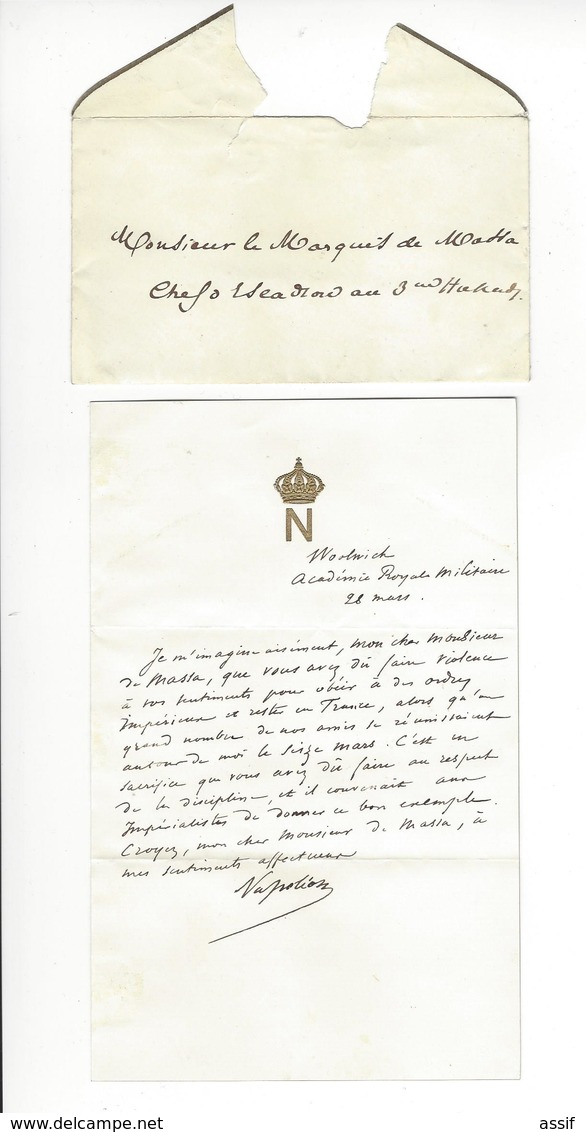 Monsieur le Marquis de Massa
Chef d'Escadron au 3me Hussards.
N
Woolwich
Académie Royale Militaire
28 mars.
Je m'imagine aisément, mon cher Monsieur
de Massa, que vous avez dû faire violence
à vos sentiments pour obéir à des ordres
impérieux et rester en France, alors qu'un
grand nombre de nos amis se réunissaient
autour de moi le seize mars. C'est un
sacrifice que vous avez dû faire au respect
de la discipline, et il convenait aux
Impérialistes de donner ce bon exemple.
Croyez, mon cher Monsieur de Massa, à
mes sentiments affectueux
Napoléon
www.delcampe.net
assif